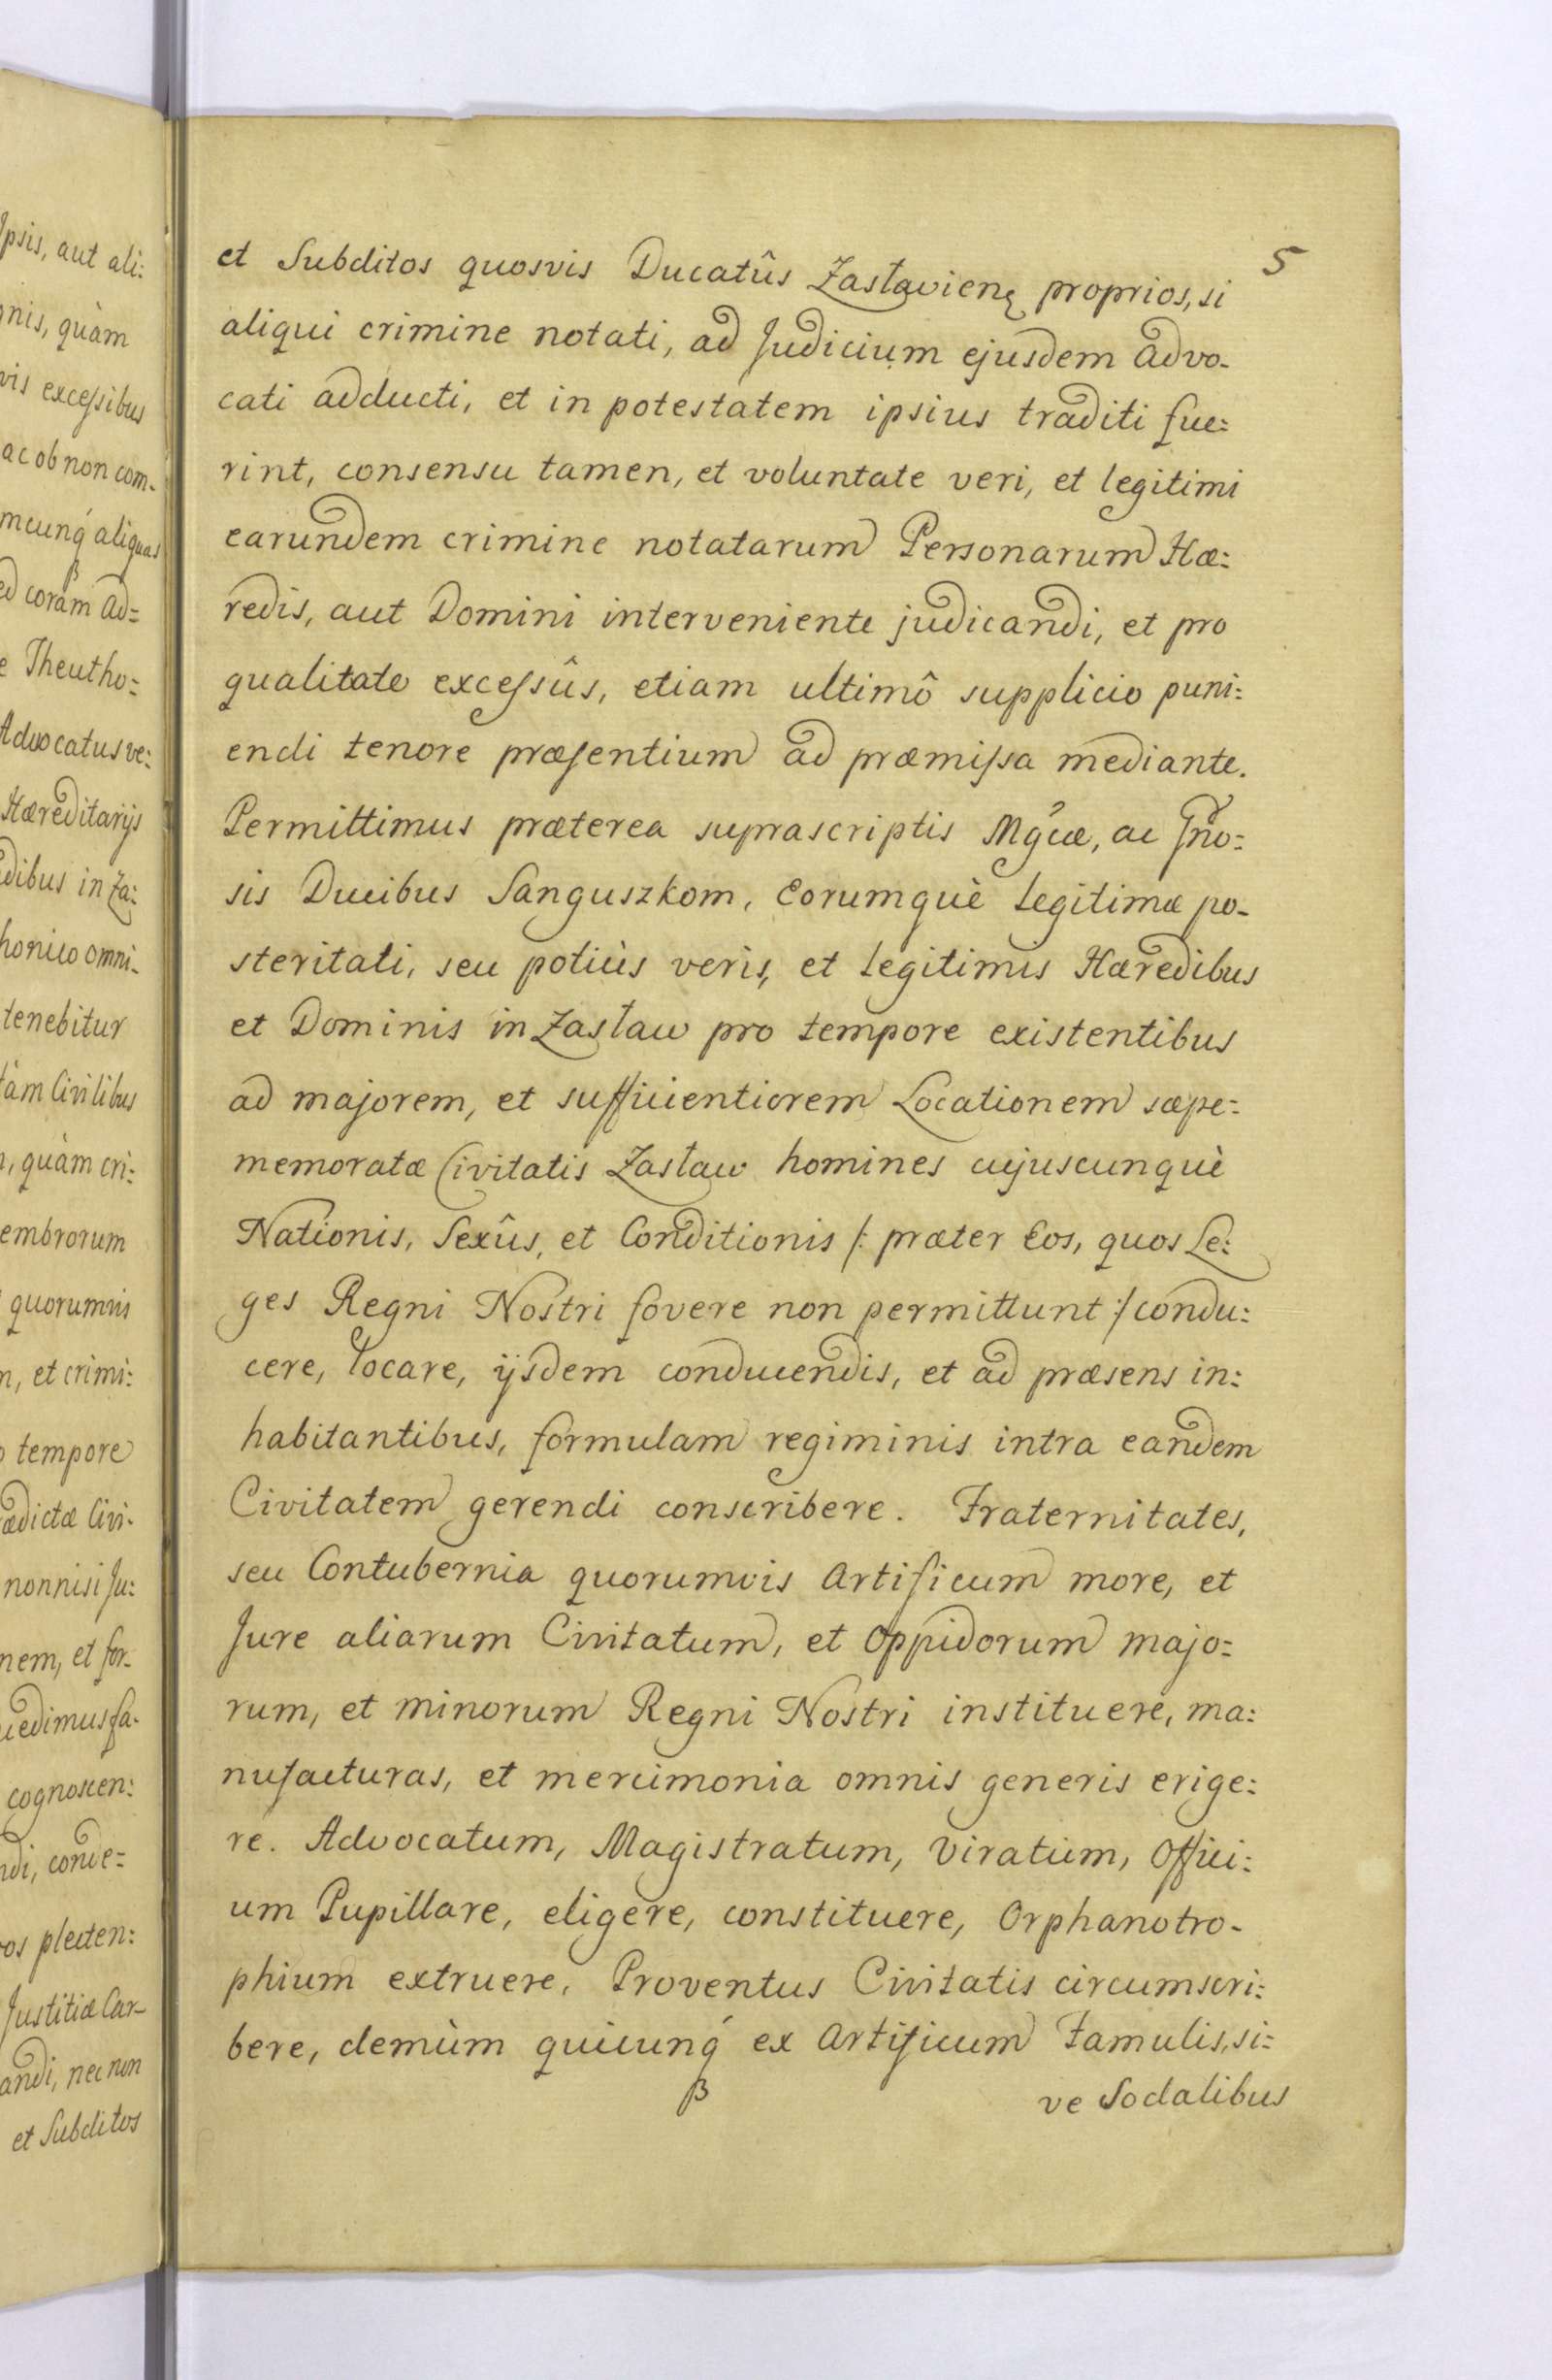 Ipsis, aut ali:
onis, quàm
vis excessibus
ac ob non com-
mcunq́ aliquas
ed coràm Ad=
e Theutho=
Advocatus ve:
Hæreditarijs
dibus in Za:
honico omni-
tenebitur
tàm Civilibus
, quàm cri:
embrorum
quorumvis
m, et crimi:
tempore
ædictæ Civi-
nonnisi Ju:
nem, et for-
cedimus fa-
cognoscen:
ndi, conde=
os plecten:
Justitiæ Car-
andi, nec non
et Subditos
5
et Subditos quosvis Ducatûs Zasławienę proprios, si
aliqui crimine notati, ad Judicium ejusdem Advo-
cati adducti, et in potestatem ipsius traditi fue=
rint, consensu tamen, et voluntate veri, et legitimi
earundem crimine notatarum Personarum Hæ=
redis, aut Domini interveniente judicandi, et pro
qualitate excessûs, etiam ultimô supplicio puni=
endi tenore præsentium ad præmissa mediante.
Permittimus præterea suprascriptis Mgcæ, ac Gno=
sis Ducibus Sanguszkom, Eorumquè legitimæ po-
steritati, seu potiùs veris, et legitimis Hæredibus
et Dominis in Zasław pro tempore existentibus
ad majorem, et sufficientiorem Locationem sæpe=
memoratæ Civitatis Zasław homines cujuscunquè
Nationis, Sexûs, et Conditionis /: præter Eos, quos Le=
ges Regni Nostri fovere non permittunt :/ condu=
cere, locare, ijsdem conducendis, et ad præsens in=
habitantibus, formulam regiminis intra eandem
Civitatem gerendi conscribere. Fraternitates,
seu Contubernia quorumvis Artificum more, et
Jure aliarum Civitatum, et Oppidorum majo=
rum, et minorum Regni Nostri instituere, ma=
nufacturas, et mercimonia omnis generis erige=
re. Advocatum, Magistratum, Viratum, Offici=
um Pupillare, eligere, constituere, Orphanotro-
phium extruere, Proventus Civitatis circumscri=
bere, demùm quicunq́ ex Artificum Famulis, si=
ve Sodalibus